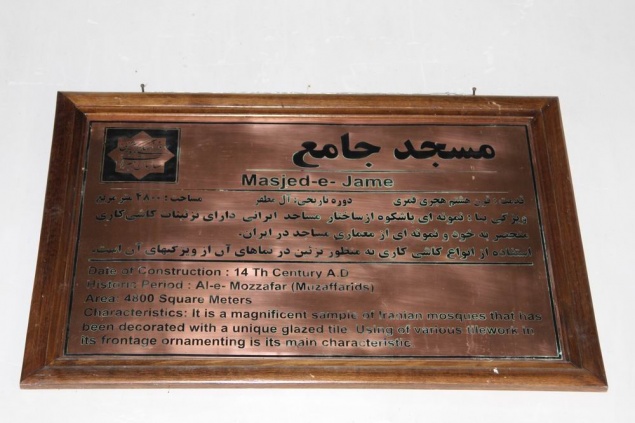 مسجد جامع
Masjed-e- Jame
قدمت: قرن هشتم هجری قمری دوره تاریخی: آل مظفر مساحت: ۴۸۰۰ متر مربع
ویژگی بنا: نمونه ای باشکوه ازساختار مساجد ایرانی دارای تزئینات کاشی‌کاری
منحصر به خود و نمونه ای از معماری مساجد در ایران.
استفاده از انواع کاشی کاری به منظور تزئین در نماهای آن از ویژگیهای آن است.
Date of Construction : 14 Th Century A.D
Historic Period : Al-e- Mozzafar (Muzaffarids)
Area: 4800 Square Meters
Characteristics: It is a magnificent sample of Iranian mosques that has
been decorated with a unique glazed tile. Using of various tilework in
its frontage ornamenting is its main characteristic